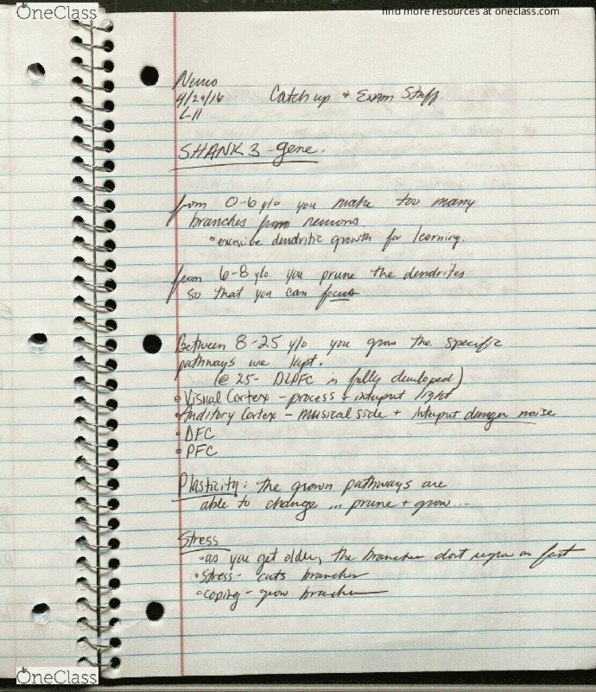 OneClass
find more resources at oneclass.com
Neuro
4/29/16
L-11
Catch up + Exam Stuff.
SHANK 3 - gene.
from 0-6 y/o you make too many
branches from neurons.
• excessive dendritic growth for learning.
from 6-8 y/o you prune the dendrites
so that you can focus
Between 8-25 y/o you grow the specific
pathways we kept.
(@ 25- DLPFC is fully developed)
• Visual Cortex - process + intuput light
• Auditory Cortex - musical side + intuput danger noise
• DFC
• PFC
Plasticity: the grown pathways are
able to change ... prune + grow...
Stress
• as you get older, the branches dont regrow as fast
• Stress - cuts branches
• coping - grow branches
OneClass